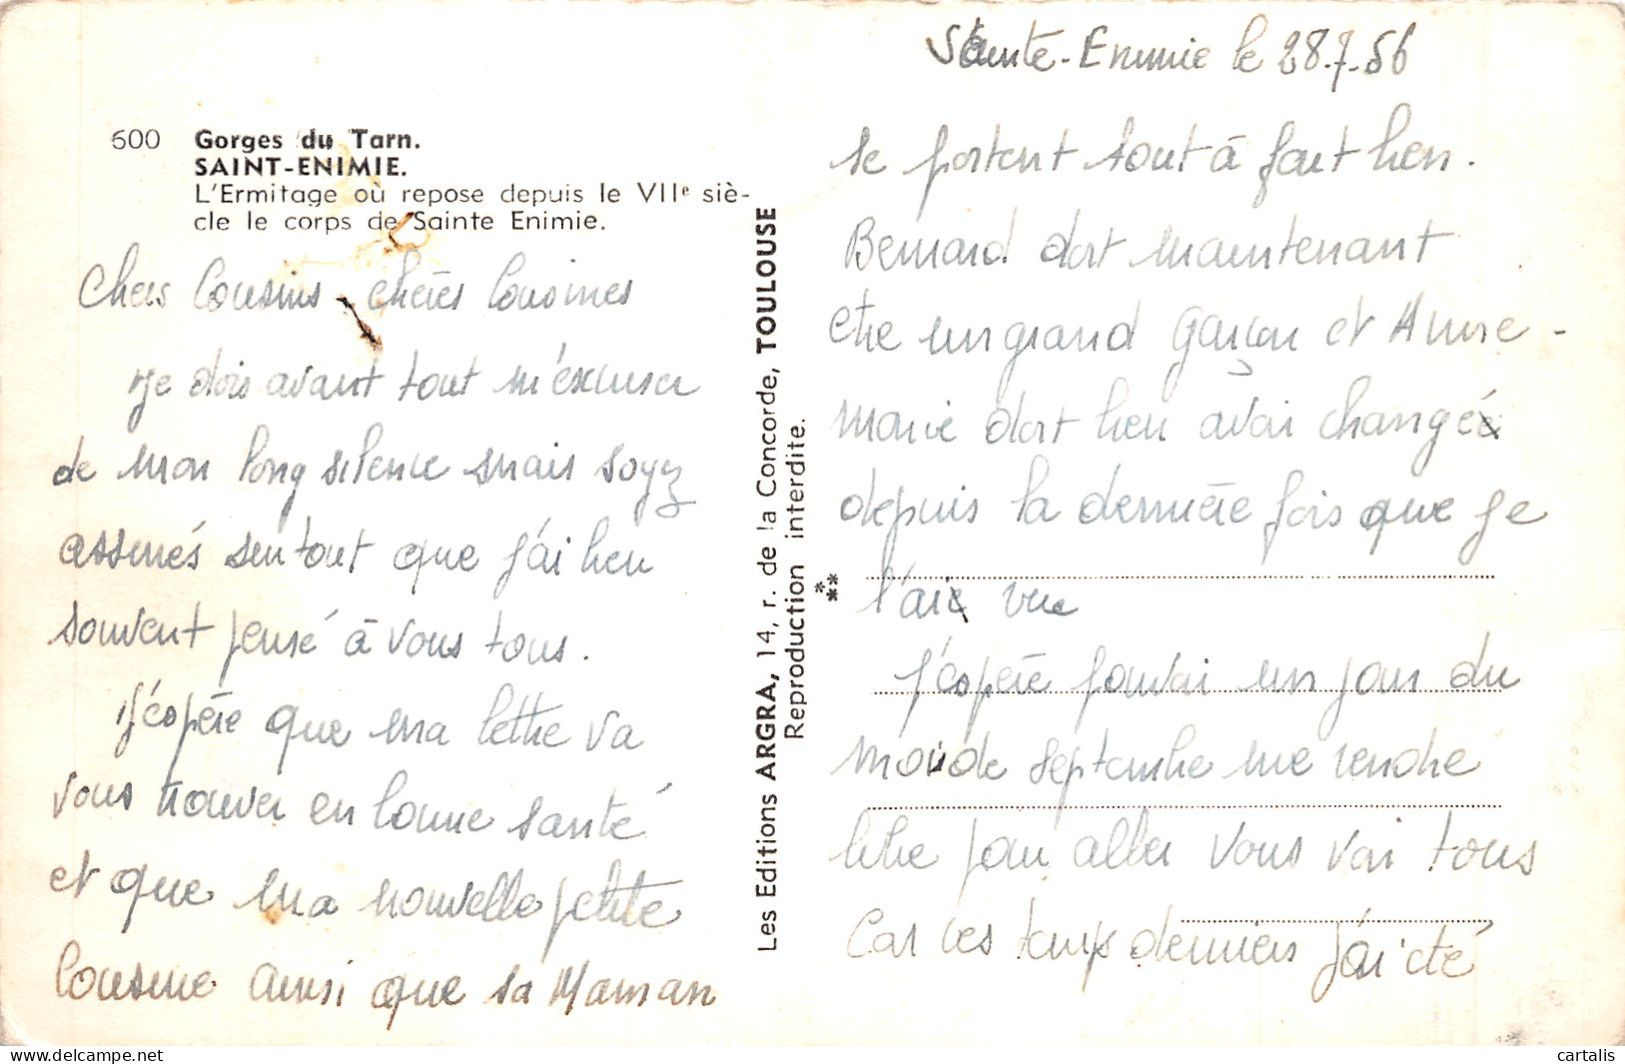 600 Gorges du Tarn.
SAINT-ENIMIE.
L'Ermitage où repose depuis le VIIe siè-
cle le corps de Sainte Enimie.
Chers Cousins - chères Cousines
Je dois avant tout m'éxcuser
de mon long silence mais soyz
assurés surtout que j'ai bien
souvent pensé à vous tous.
J'éspère que ma lettre va
vous trouver en bonne santé
et que ma nouvelle petite
Cousine ainsi que sa Maman
Les Editions ARGRA, 14, r. de la Concorde, TOULOUSE
Reproduction interdite.
Sainte-Enimie le 28.7.56
se portent tout à fait bien.
Bernard doit maintenant
etre un grand Garçon et Anne-
marie doit bien avoir changé
depuis la dernière fois que je
l'ai vue
J'éspère pouvoir un jour du
mois de septembre me rendre
libre pour aller vous voir tous
Car ces temps derniers j'ai été
cartalis